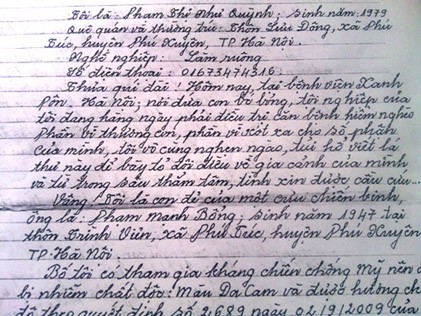 Tôi là: Phạm Thị Như Quỳnh; sinh năm: 1979
Quê quán và thường trú: Thôn Lưu Đông, xã Phú
Túc, huyện Phú Xuyên, TP Hà Nội.
Nghề nghiệp: Làm ruộng
Số điện thoại: 01673474316.
Thưa quí đài! Hôm nay, tại bệnh viện Xanh
Pôn. Hà Nội; nơi đứa con bé bỏng, tội nghiệp của
tôi đang hàng ngày phải điều trị căn bệnh hiểm nghèo
Phần vì thương con, phần vì xót xa cho số phận
của mình, tôi vô cùng nghẹn ngào, tủi hổ viết lá
thư này để bày tỏ đôi điều về gia cảnh của mình
và từ trong sâu thẳm tâm, tình xin được cầu cứu...
Vâng! Tôi là con đẻ của một cựu chiến binh,
ông là: Phạm Mạnh Bồng; sinh năm 1947 tại
thôn Trình Viên, xã Phú Túc, huyện Phú Xuyên
TP. Hà Nội.
Bố tôi có tham gia kháng chiến chống Mỹ nên đ
bị nhiễm chất độc: Màu Da Cam và được hưởng ch
độ theo quyết định số 2689 ngày 02/9/2009 của